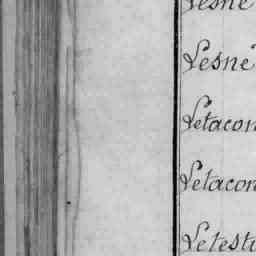 Lesne
Lesne
Letacon
Letacon
Letestu